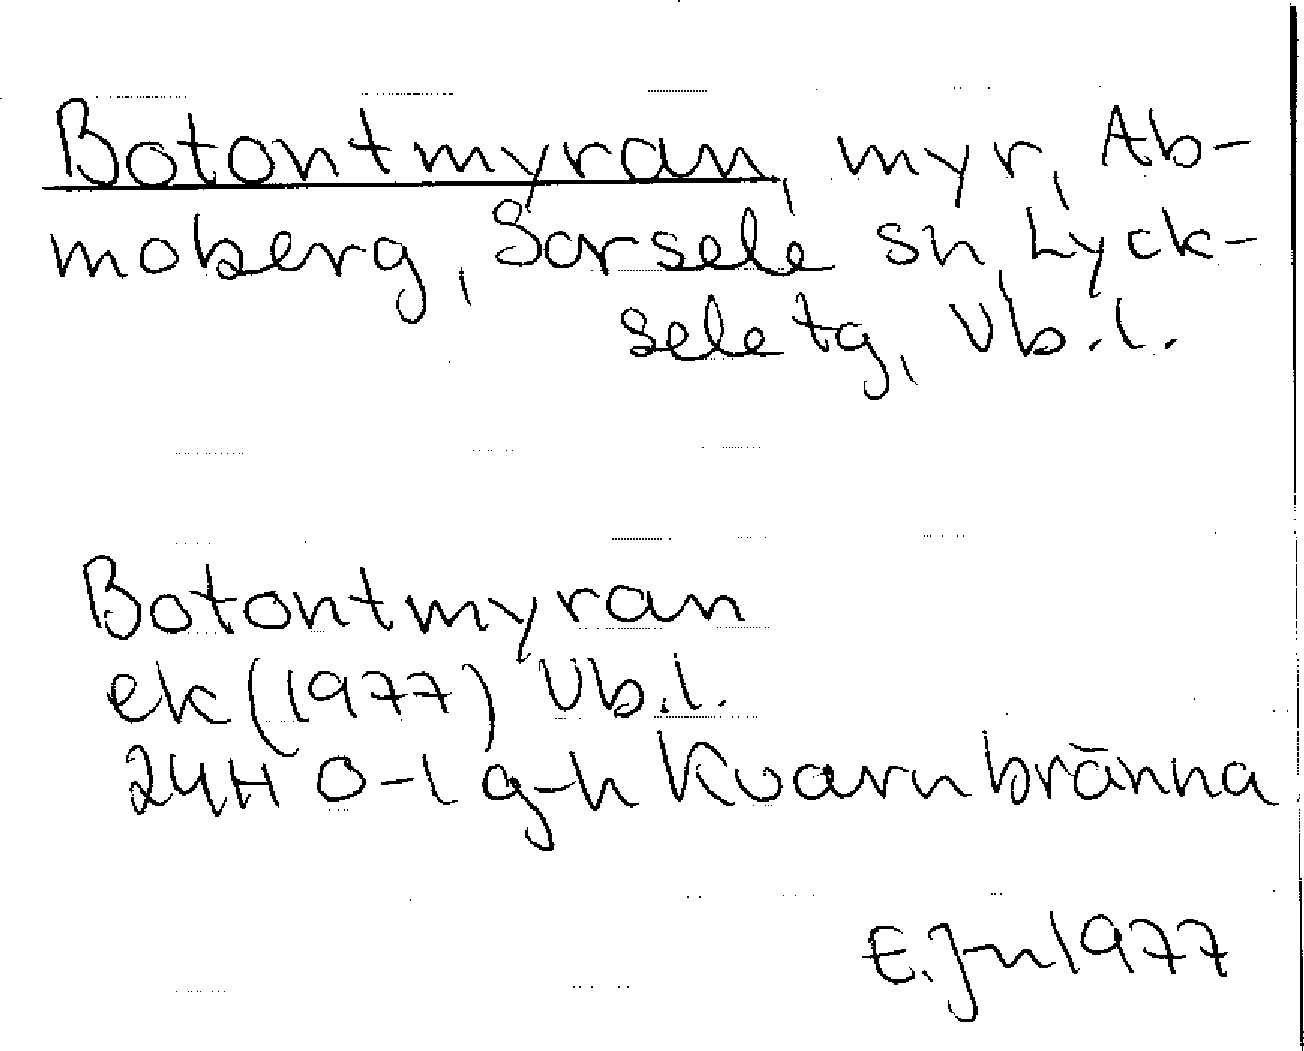 Botontmyran, myr, Ab-
moberg, Sorsele sn, Lyck-
sele tg, Vb.l.
Botontmyran
ek (1977) Vb.l.
24H 0-1 g-h Kvarnbränna
E. Jn 1977